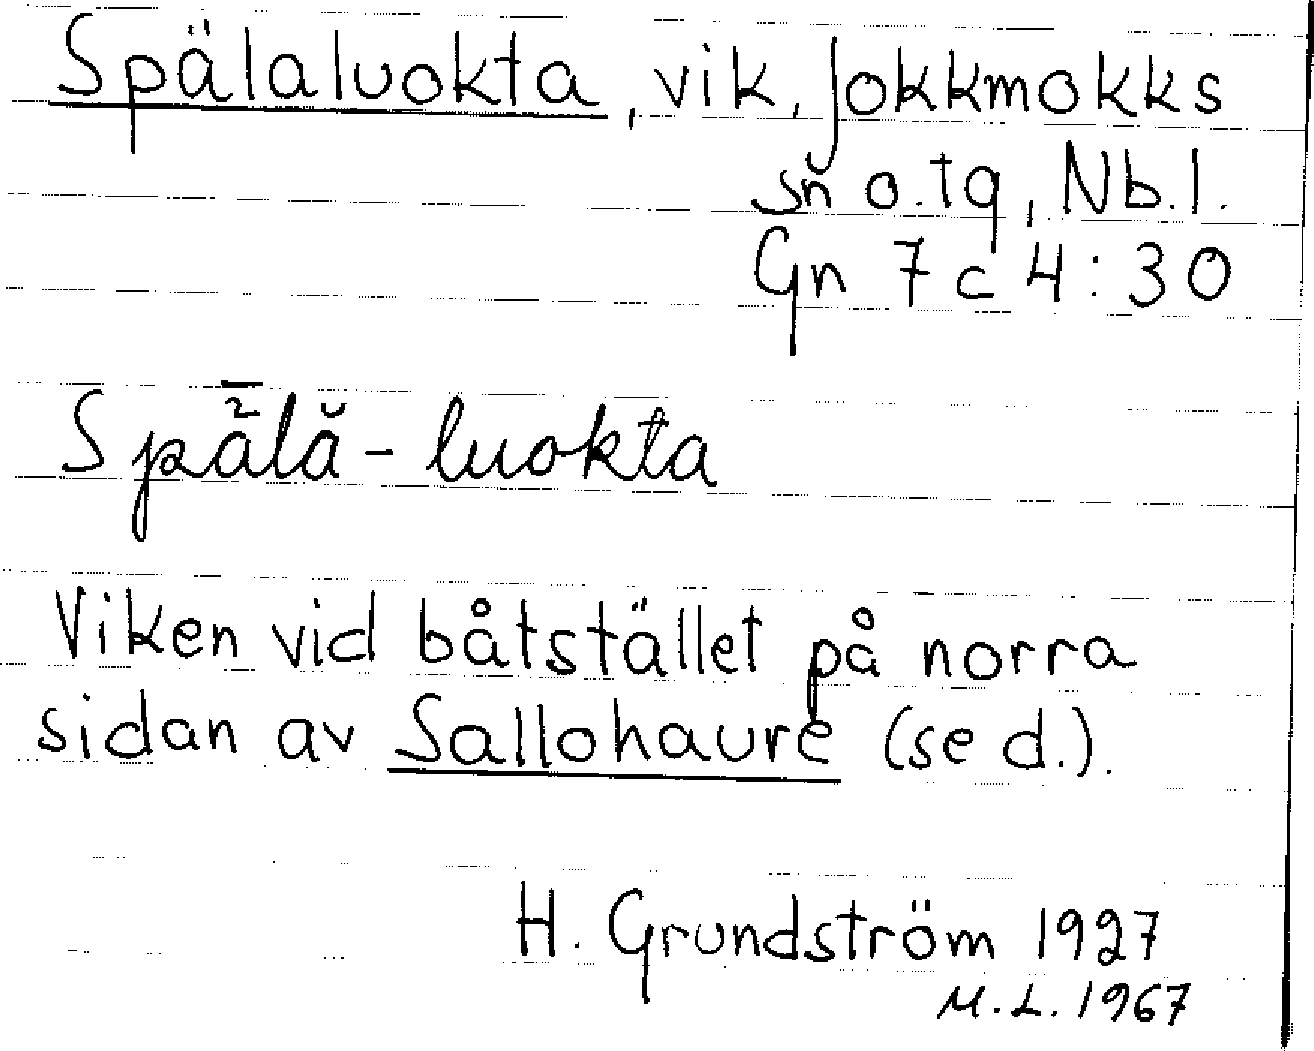 Spälaluokta, vik, Jokkmokks
sn o. tg, Nb. l.
Gn 7c 4:30
Spā̀lă-luokta
Viken vid båtstället på norra
sidan av Sallohaure (se d.).
H. Grundström 1927
M. L. 1967